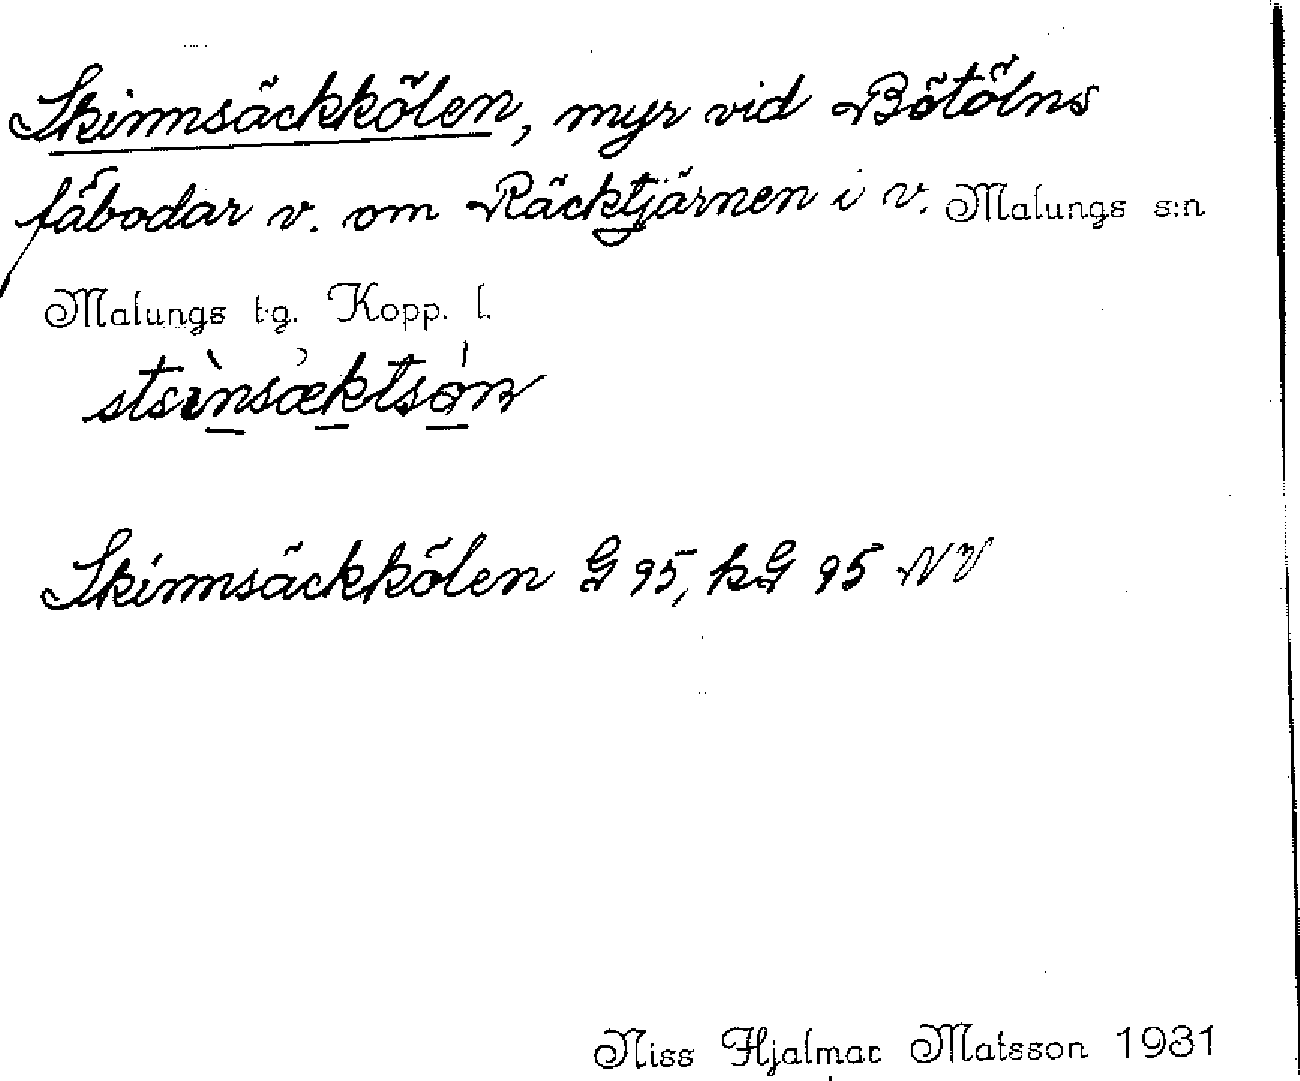 Skinnsäckkölen, myr vid Bötölns
fäbodar v. om Räcktjärnen i v. Malungs s:n
Malungs tg. Kopp. l.
Skinnsäckkölen G 95, kG 95 NV
Niss Hjalmar Matsson 1931